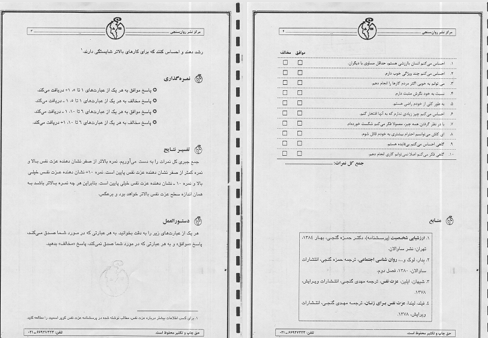 مرکز نشر روان‌سنجی
۳
رشد دهند و احساس کنند که برای کارهای بالاتر شایستگی دارند.
نمره‌گذاری
پاسخ موافق به هر یک از عبارت‌های ۱ تا ۵، ۱+ دریافت می‌کند.
پاسخ مخالف به هر یک از عبارت‌های ۱ تا ۵، ۱- دریافت می‌کند.
پاسخ موافق به هر یک از عبارت‌های ۶ تا ۱۰، ۱- دریافت می‌کند.
پاسخ مخالف به هر یک از عبارت‌های ۶ تا ۱۰، ۱+ دریافت می‌کند.
تفسیر نتایج
جمع جبری کل نمرات را به دست می‌آوریم. نمره بالاتر از صفر نشان دهنده عزت نفس بالا و
نمره کمتر از صفر نشان دهنده عزت نفس پایین است. نمره ۱۰+ نشان دهنده عزت نفس خیلی
بالا و نمره ۱۰- نشان دهنده عزت نفس خیلی پایین است. بنابراین هر چه نمره بالاتر باشد به
همان اندازه سطح عزت نفس بالاتر خواهد بود و برعکس.
دستورالعمل
هر یک از عبارت‌های زیر را به دقت بخوانید. به هر عبارتی که در مورد شما صدق می‌کند،
پاسخ «موافق» و به هر عبارتی که در مورد شما صدق نمی‌کند، پاسخ «مخالف» بدهید.
حق چاپ و تکثیر محفوظ است.
مرکز نشر روان‌سنجی
۴
موافق مخالف
۱. احساس می‌کنم انسان باارزشی هستم، حداقل مساوی با دیگران.
۲. احساس می‌کنم چند ویژگی خوب دارم.
۳. می توانم به خوبی اکثر مردم کارها را انجام دهم.
۴. نسبت به خود نگرش مثبت دارم.
۵. به طور کلی از خودم راضی هستم.
۶. احساس می‌کنم چیز زیادی ندارم که به آنها افتخار کنم.
۷. با در نظر گرفتن همه چیز، معمولاً فکر می‌کنم شکست خورده‌ام.
۸. ای کاش می‌توانستم احترام بیشتری به خودم قائل شوم.
۹. گاهی احساس می‌کنم بی‌فایده هستم.
۱۰. گاهی فکر می‌کنم اصلاً نمی‌توانم کاری انجام دهم.
جمع کل نمرات:
منابع
۱. ارزشیابی شخصیت (پرسشنامه)، دکتر حمزه گنجی، بهار ۱۳۸۴،
تهران: نشر ساوالان.
۲. بدار، لوک و... روان شناسی اجتماعی، ترجمه حمزه گنجی، انتشارات
ساوالان، ۱۳۸۰، فصل دوم.
۳. شیهان، ایلین، عزت نفس، ترجمه مهدی گنجی، انتشارات ویرایش،
۱۳۷۸.
۴. فیلد، لیندا، عزت نفس برای زنان، ترجمه مهدی گنجی، انتشارات
ویرایش، ۱۳۷۸.
حق چاپ و تکثیر محفوظ است.